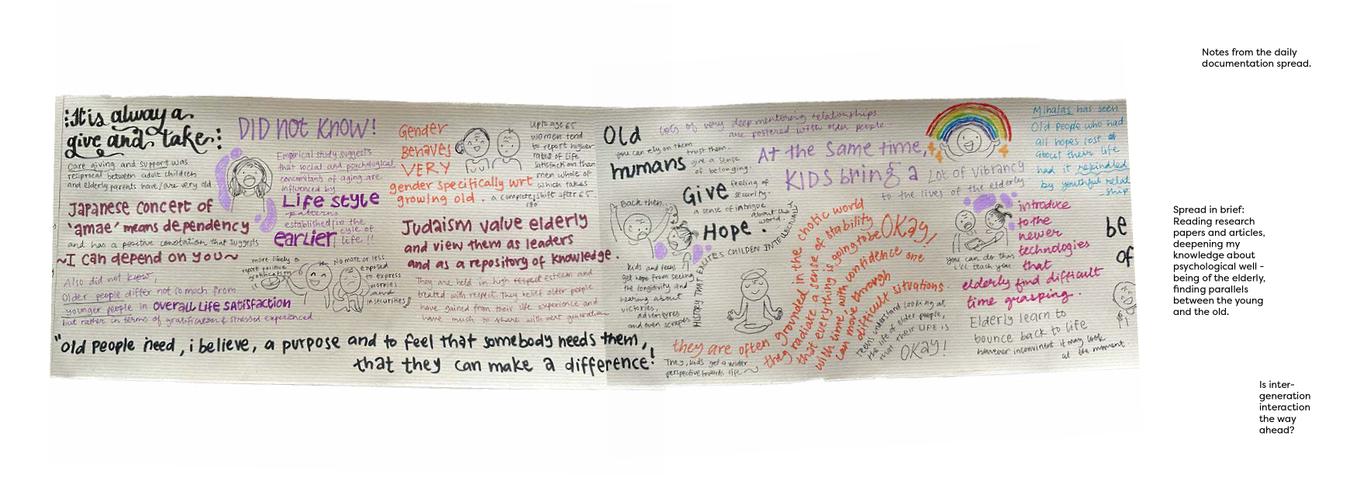 It is always a
give and take:
Care giving and support was
reciprocal between adult children
and elderly parents have/are very old
Japanese concert of
'amae' means dependency
and has a positive conotation that suggests
~I can depend on you~
Also did not know,
Older people differ not so much from
younger people in overall life satisfaction
but rather in terms of gratification & stressed experienced
DID not KNOW!
Empirical study suggests
that social and psychological
concomitants of aging are
influenced by
Life style
patterns
established in the
earlier cycle of
life !!
more likely to
report positive
gratification
No more or less
exposed
to express
worries
and
insecurities
Gender
Behaves
VERY
gender specifically wrt
growing old.
Upto age 65
women tend
to report higher
rates of life
satisfaction than
men whole of
which takes
a complete shift after 65
Judaism value elderly
and view them as leaders
and as a repository of knowledge.
They are held in high respect esteem and
treated with respect. They relief older people
have gained from their life experience and
have much to share with next generation
"Old people need, i believe, a purpose and to feel that somebody needs them,
that they can make a difference!
Old
humans
you can rely on them
trust them.
give a sense
of belonging.
Give
feeling of
security.
a sense of intrigue
about the
world.
Hope.
Back then..
kids and teens
get hope from seeing
the longevity and
hearing about
victories,
adventures
and even scrapes
HISTORY THAT EXCITES CHILDREN INTELLECTUALLY
Lots of very deep mentoring relationships
are fostered with older people
At the same time,
KIDS bring a Lot of Vibrancy
to the lives of the elderly
they are often grounded in the chotic world
they radiate a sense of stability
that everything is going to be OKay!
with time, with confidence one
can move through
difficult situations
They, kids get a wider
perspective towards life~
Teens understand looking at
the life of older people,
LIFE is
OKay!
Mihalas has seen
Old People who had
all hopes lost of
about their life
had it rekindled
by youthful relat
-ship
you can do this
i'll teach you
introduce
to the
newer
technologies
that
elderly find difficult
time grasping.
Elderly learn to
bounce back to life
however inconvinient it may look
at the moment
be
of
Notes from the daily
documentation spread.
Spread in brief:
Reading research
papers and articles,
deepening my
knowledge about
psychological well -
being of the elderly,
finding parallels
between the young
and the old.
Is inter-
generation
interaction
the way
ahead?